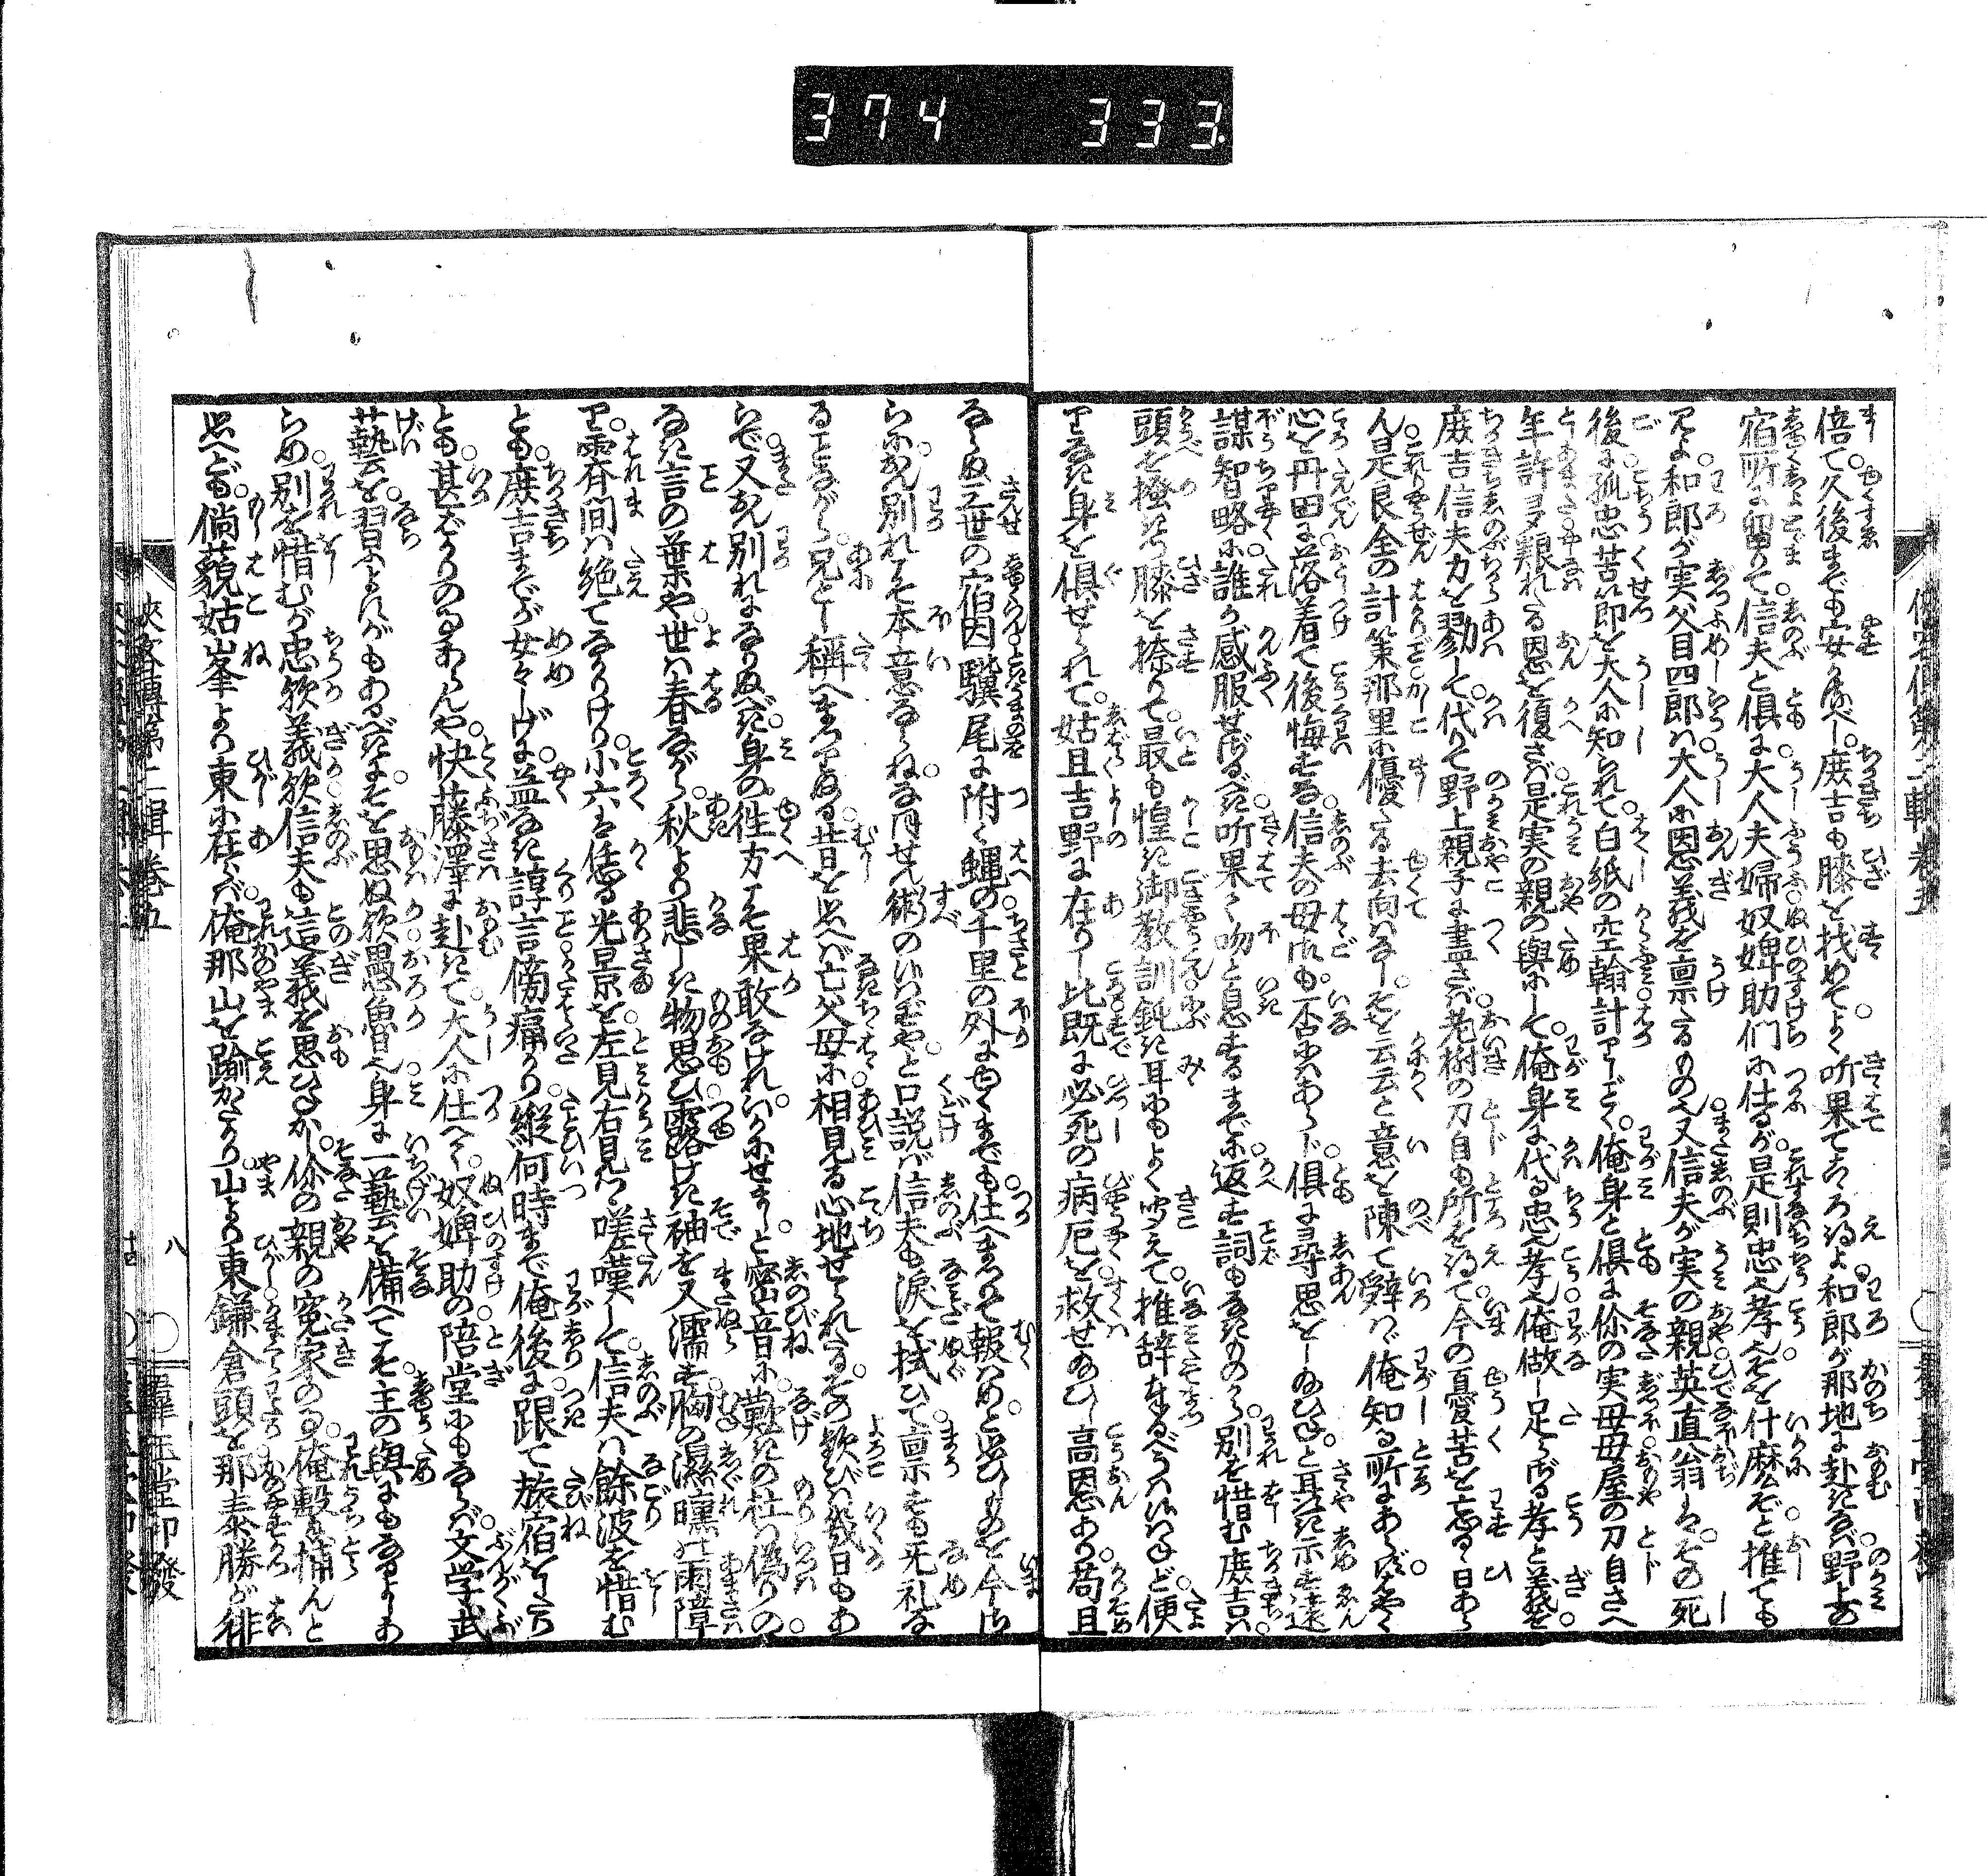 374 333.
倍て久後までも安かるべし。庶吉も膝を找めてよく听果てこゝろ得よ和郎が那地に赴きなば野上の
宿所に留りて。信夫と倶に大人夫婦奴婢助们に仕るが。是則忠也孝也。そを什麽ぞと推ても
見よ。和郎が実父目四郎ハ大人に恩義を禀たるもの也。又信夫が実の親英直翁しハ。その死
後に孤忠苦節を大人に知られて。白紙の空翰計りしごとく。俺身と倶に你の実母母屋の刀自さへ
年許多艱れたる恩を復さバ。是実の親の與にして。俺身に代る忠也孝也。俺做し足らざる孝と義を
庶吉信夫力を勠して。代りて野上親子に盡さバ。老樹の刀自も所を得て。今の憂苦を忘るゝ日あら
ん。是良全の計策那里に優たる去向ハなし。そを云云と意を陳て辞ハヾ。俺知る所にあらざる也。やよや
心を丹田に落着て後悔すな。信夫の母御も。否にハあらじ。倶に尋思をし給ひねと耳近き示す遠
謀智略に誰か感服せざるべき。听果て吻と息するまでに。返す詞もなきものから。別を惜む庶吉ハ
頭を掻きつゝ膝を捺りて。最も惶き御教訓鈍き耳にもよく聞えて。推辞奉るべうハ候はねど。便
りなき身を倶せられて。姑且吉野に在りし比既に必死の病厄を救せ給ひし高恩あり。苟且
ならぬ三世の宿因驥尾に附く蝿の。千里の外に迄も仕へまつりて報はめと思ひしものを今さ
らに。おん別れをそ本意ならね。なほせん術のいかでやと。口説バ信夫も涙を拭ひて。禀すも无礼な
ることながら。兄とし稱へまつりぬる。昔を思へバ亡父母に相見る心地せられたる。その歓びハ幾日もあ
らで。又おん別れになりぬべき。身の往方こそ果敢なけれ。いかにせましと密音に。歎きの杜の偽りの
なき言の葉や。世ハ春ながら。秋より悲しき物思ひ。露けき袖を又濡す。胸の濕曛の雨障
り。霽間ハ絶てなかりけり。小六ハ恁る光景を。左見右見つゝ嗟嘆して。信夫ハ餘波を惜む
とも。庶吉までが女々しげに。益なき諄言傍痛かり。縦何時まで俺後に跟て旅宿をすれバ
とも。甚ばかりのことあらんや。快藤澤に赴きて。大人に仕へよ。奴婢助の陪堂にもならバ。文学武
藝を習ふよすがもあるべきに。そを思ぬ欤愚魯也。身に一藝を備へてそ。主の與にもなるよしあ
らめ。別を惜むが忠欤義欤。信夫も這義を思ひねかし。你の親の寃家のこと。俺轂に捕んと
思へども。倘藐姑峯より東に在らバ。俺那山を踰がたかり。山より東鎌倉頭を那泰勝が徘
俠客傳第二輯巻五
八
○
群玉堂印發